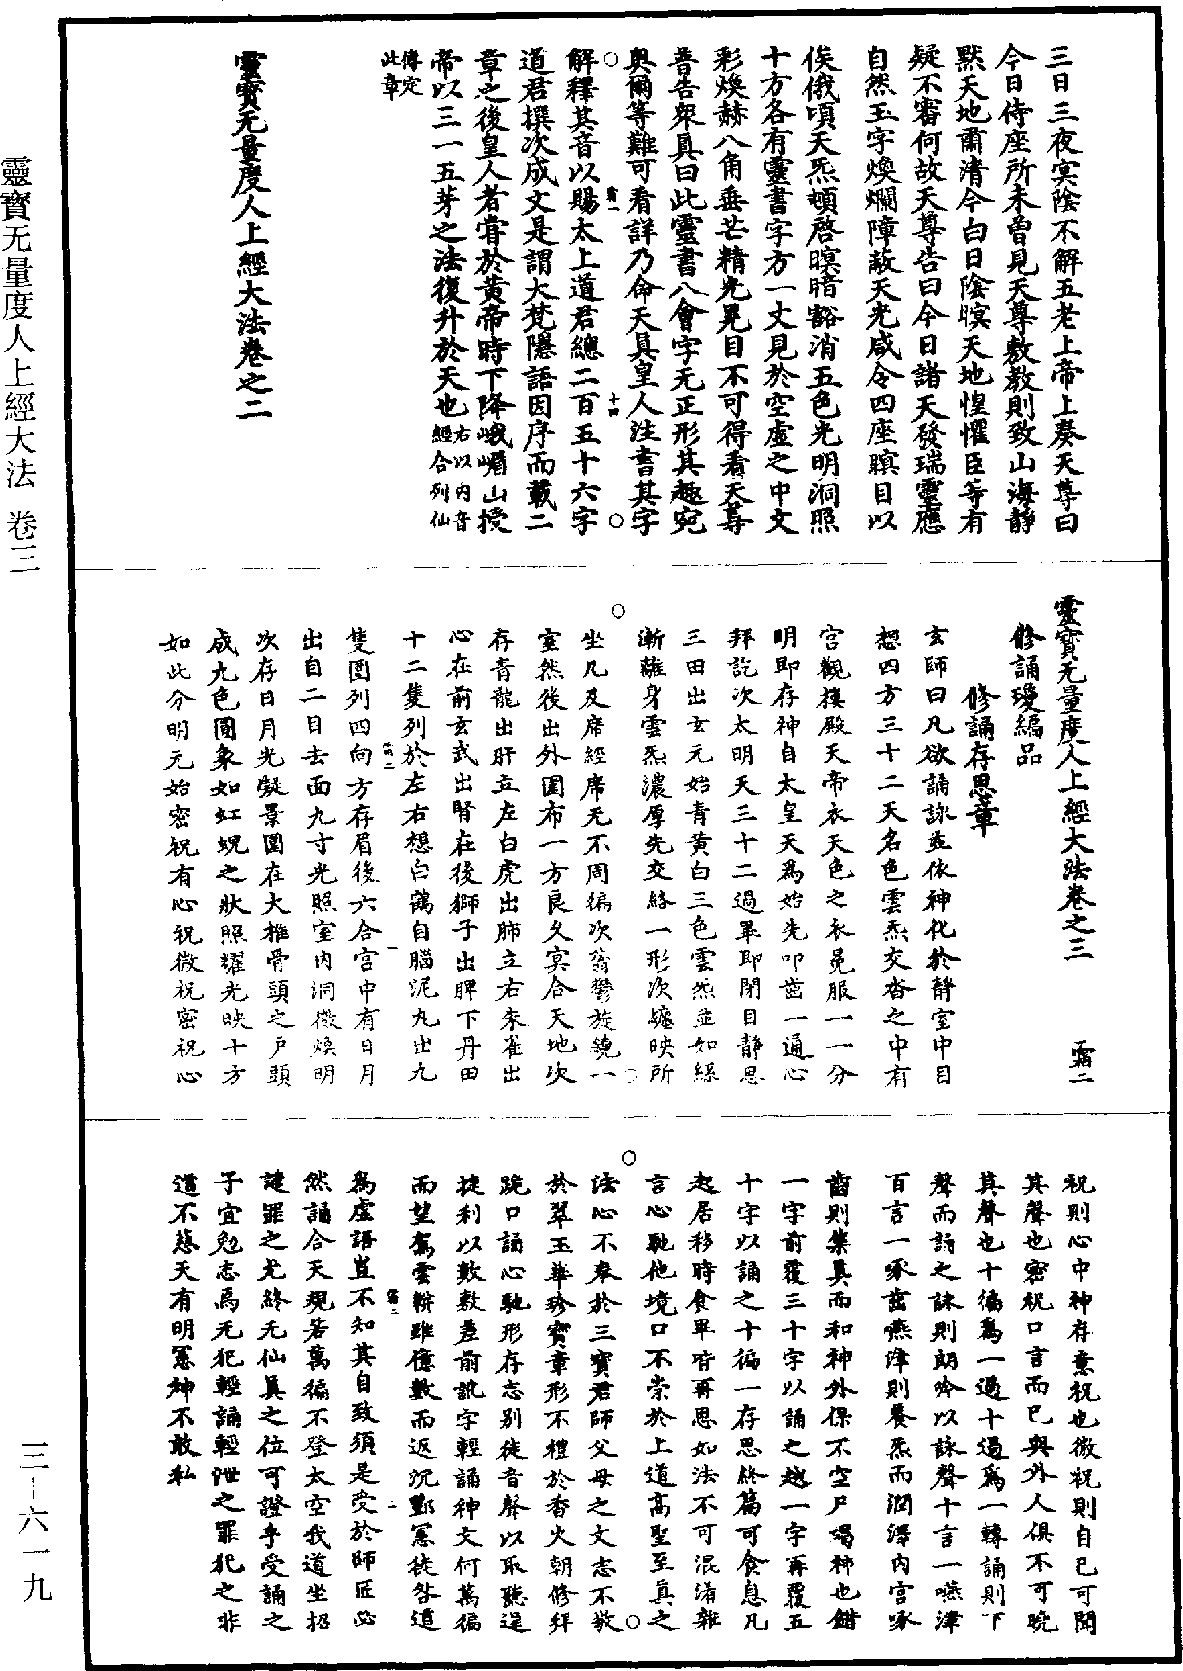 三日三夜冥陰不解五老上帝上奏天尊曰
今日侍座所未曾見天尊敷教則致山海靜
默天地肅清今白日陰暝天地惶懼臣等有
疑不審何故天尊告曰今日諸天發瑞靈應
自然玉字煥爛障蔽天光咸令四座瞑目以
俟俄頃天炁頓啓暝暗豁消五色光明洞照
十方各有靈書字方一丈見於空虛之中文
彩煥赫八角垂芒精光晃目不可得看天尊
普告眾真曰此靈書八會字无正形其趣宛
奧爾等難可看詳乃命天真皇人注書其字
解釋其音以賜太上道君總二百五十六字
道君撰次成文是謂大梵隱語因序而載二
章之後皇人者甞於黃帝時下降峨嵋山授
帝以三一五芽之法復升於天也右以內音經合列仙
傳定此章
靈寶无量度人上經大法卷之二
靈寶无量度人上經大法卷之三 霜二
修誦瓊編品
修誦存思章
玄師曰凡欲誦詠並依神化於靜室中目
想四方三十二天名色雲炁交沓之中有
宮觀樓殿天帝衣天色之衣冕服一一分
明即存神自太皇天為始先叩齒一通心
拜訖次太明天三十二過畢即閉目靜思
三田出玄元始青黃白三色雲炁並如綵
漸離身雲炁濃厚先交絡一形次遶映所
坐几及席經席无不周徧次蓊鬱旋繞一
室然後出外圍布一方良久冥合天地次
存青龍出肝立左白虎出肺立右朱雀出
心在前玄武出腎在後獅子出脾下丹田
十二隻列於左右想白鶴自腦泥丸出九
隻圍列四向方存眉後六合宮中有日月
出自二目去面九寸光照室內洞徹煥明
次存日月光凝景圓在大椎骨頭之戶頭
成九色圓象如虹蜺之狀照耀光映十方
如此分明元始密祝有心祝微祝密祝心
祝則心中神存意祝也微祝則自已可聞
其聲也密祝口言而已與外人俱不可曉
其聲也十徧為一過十過為一轉誦則下
聲而誦之詠則朗吟以詠聲十言一嚥津
百言一啄齒嚥津則養炁而潤澤內宮啄
齒則集真而和神外保不空尸喝神也錯
一字前覆三十字以誦之越一字再覆五
十字以誦之十徧一存思終篇可食息凡
起居移時食畢皆再思如法不可混淆雜
言心馳他境口不崇於上道高聖至真之
法心不奉於三寶君師父母之文志不敬
於翠玉華珍寶章形不禮於香火朝修拜
跪口誦心馳形存忘別徒音聲以取聽逞
捷利以數數差前訛字輕誦神文何萬徧
而望駕雲軿雖億數而返沉酆冤徒咎道
為虛語豈不知其自致須是受於師匠必
然誦合天規若萬徧不登太空我道坐招
謹罪之尤終无仙真之位可證乎受誦之
子宜勉志焉无犯輕誦輕泄之罪犯之非
道不慈天有明憲神不敢私
靈寶无量度人上經大法 卷三
三－六一九